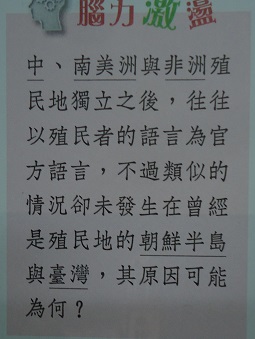 腦力激盪
中、南美洲與非洲殖
民地獨立之後，往往
以殖民者的語言為官
方語言，不過類似的
情況卻未發生在曾經
是殖民地的朝鮮半島
與臺灣，其原因可能
為何？